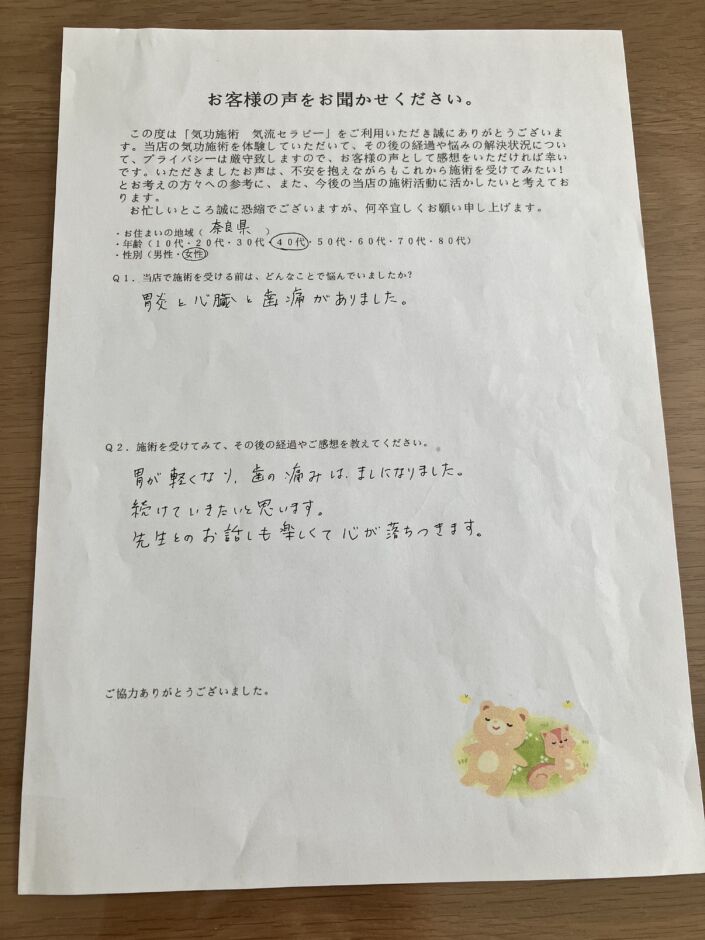 お客様の声をお聞かせください。
この度は「気功施術　気流セラピー」をご利用いただき誠にありがとうございま
す。当店の気功施術を体験していただいて、その後の経過や悩みの解決状況につい
て、プライバシーは厳守致しますので、お客様の声として感想をいただければ幸い
です。いただきましたお声は、不安を抱えながらもこれから施術を受けてみたい！
とお考えの方々への参考に、また、今後の当店の施術活動に活かしたいと考えてお
ります。
お忙しいところ誠に恐縮でございますが、何卒宜しくお願い申し上げます。
・お住まいの地域（ 奈良県 ）
・年齢（１０代・２０代・３０代・４０代・５０代・６０代・７０代・８０代）
・性別（男性・女性）
Ｑ１．当店で施術を受ける前は、どんなことで悩んでいましたか？
胃炎と心臓と歯痛がありました。
Ｑ２．施術を受けてみて、その後の経過やご感想を教えてください。
胃が軽くなり、歯の痛みは、ましになりました。
続けていきたいと思います。
先生とのお話しも楽しくて心が落ちつきます。
ご協力ありがとうございました。